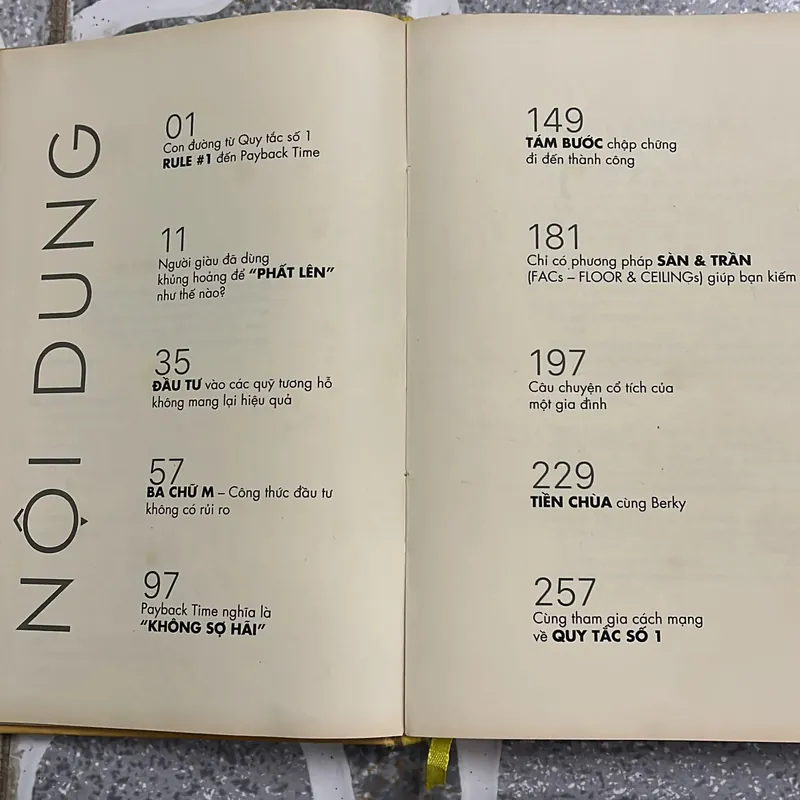 NỘI DUNG
01
Con đường từ Quy tắc số 1
RULE #1 đến Payback Time
11
Người giàu đã dùng
khủng hoảng để “PHẤT LÊN”
như thế nào?
35
ĐẦU TƯ vào các quỹ tương hỗ
không mang lại hiệu quả
57
BA CHỮ M – Công thức đầu tư
không có rủi ro
97
Payback Time nghĩa là
“KHÔNG SỢ HÃI”
149
TÁM BƯỚC chập chững
đi đến thành công
181
Chỉ có phương pháp SÀN & TRẦN
(FACs – FLOOR & CEILINGs) giúp bạn kiếm
197
Câu chuyện cổ tích của
một gia đình
229
TIỀN CHÙA cùng Berky
257
Cùng tham gia cách mạng
về QUY TẮC SỐ 1